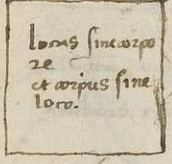 locus sine corpo
re
et corpus sine
loco.